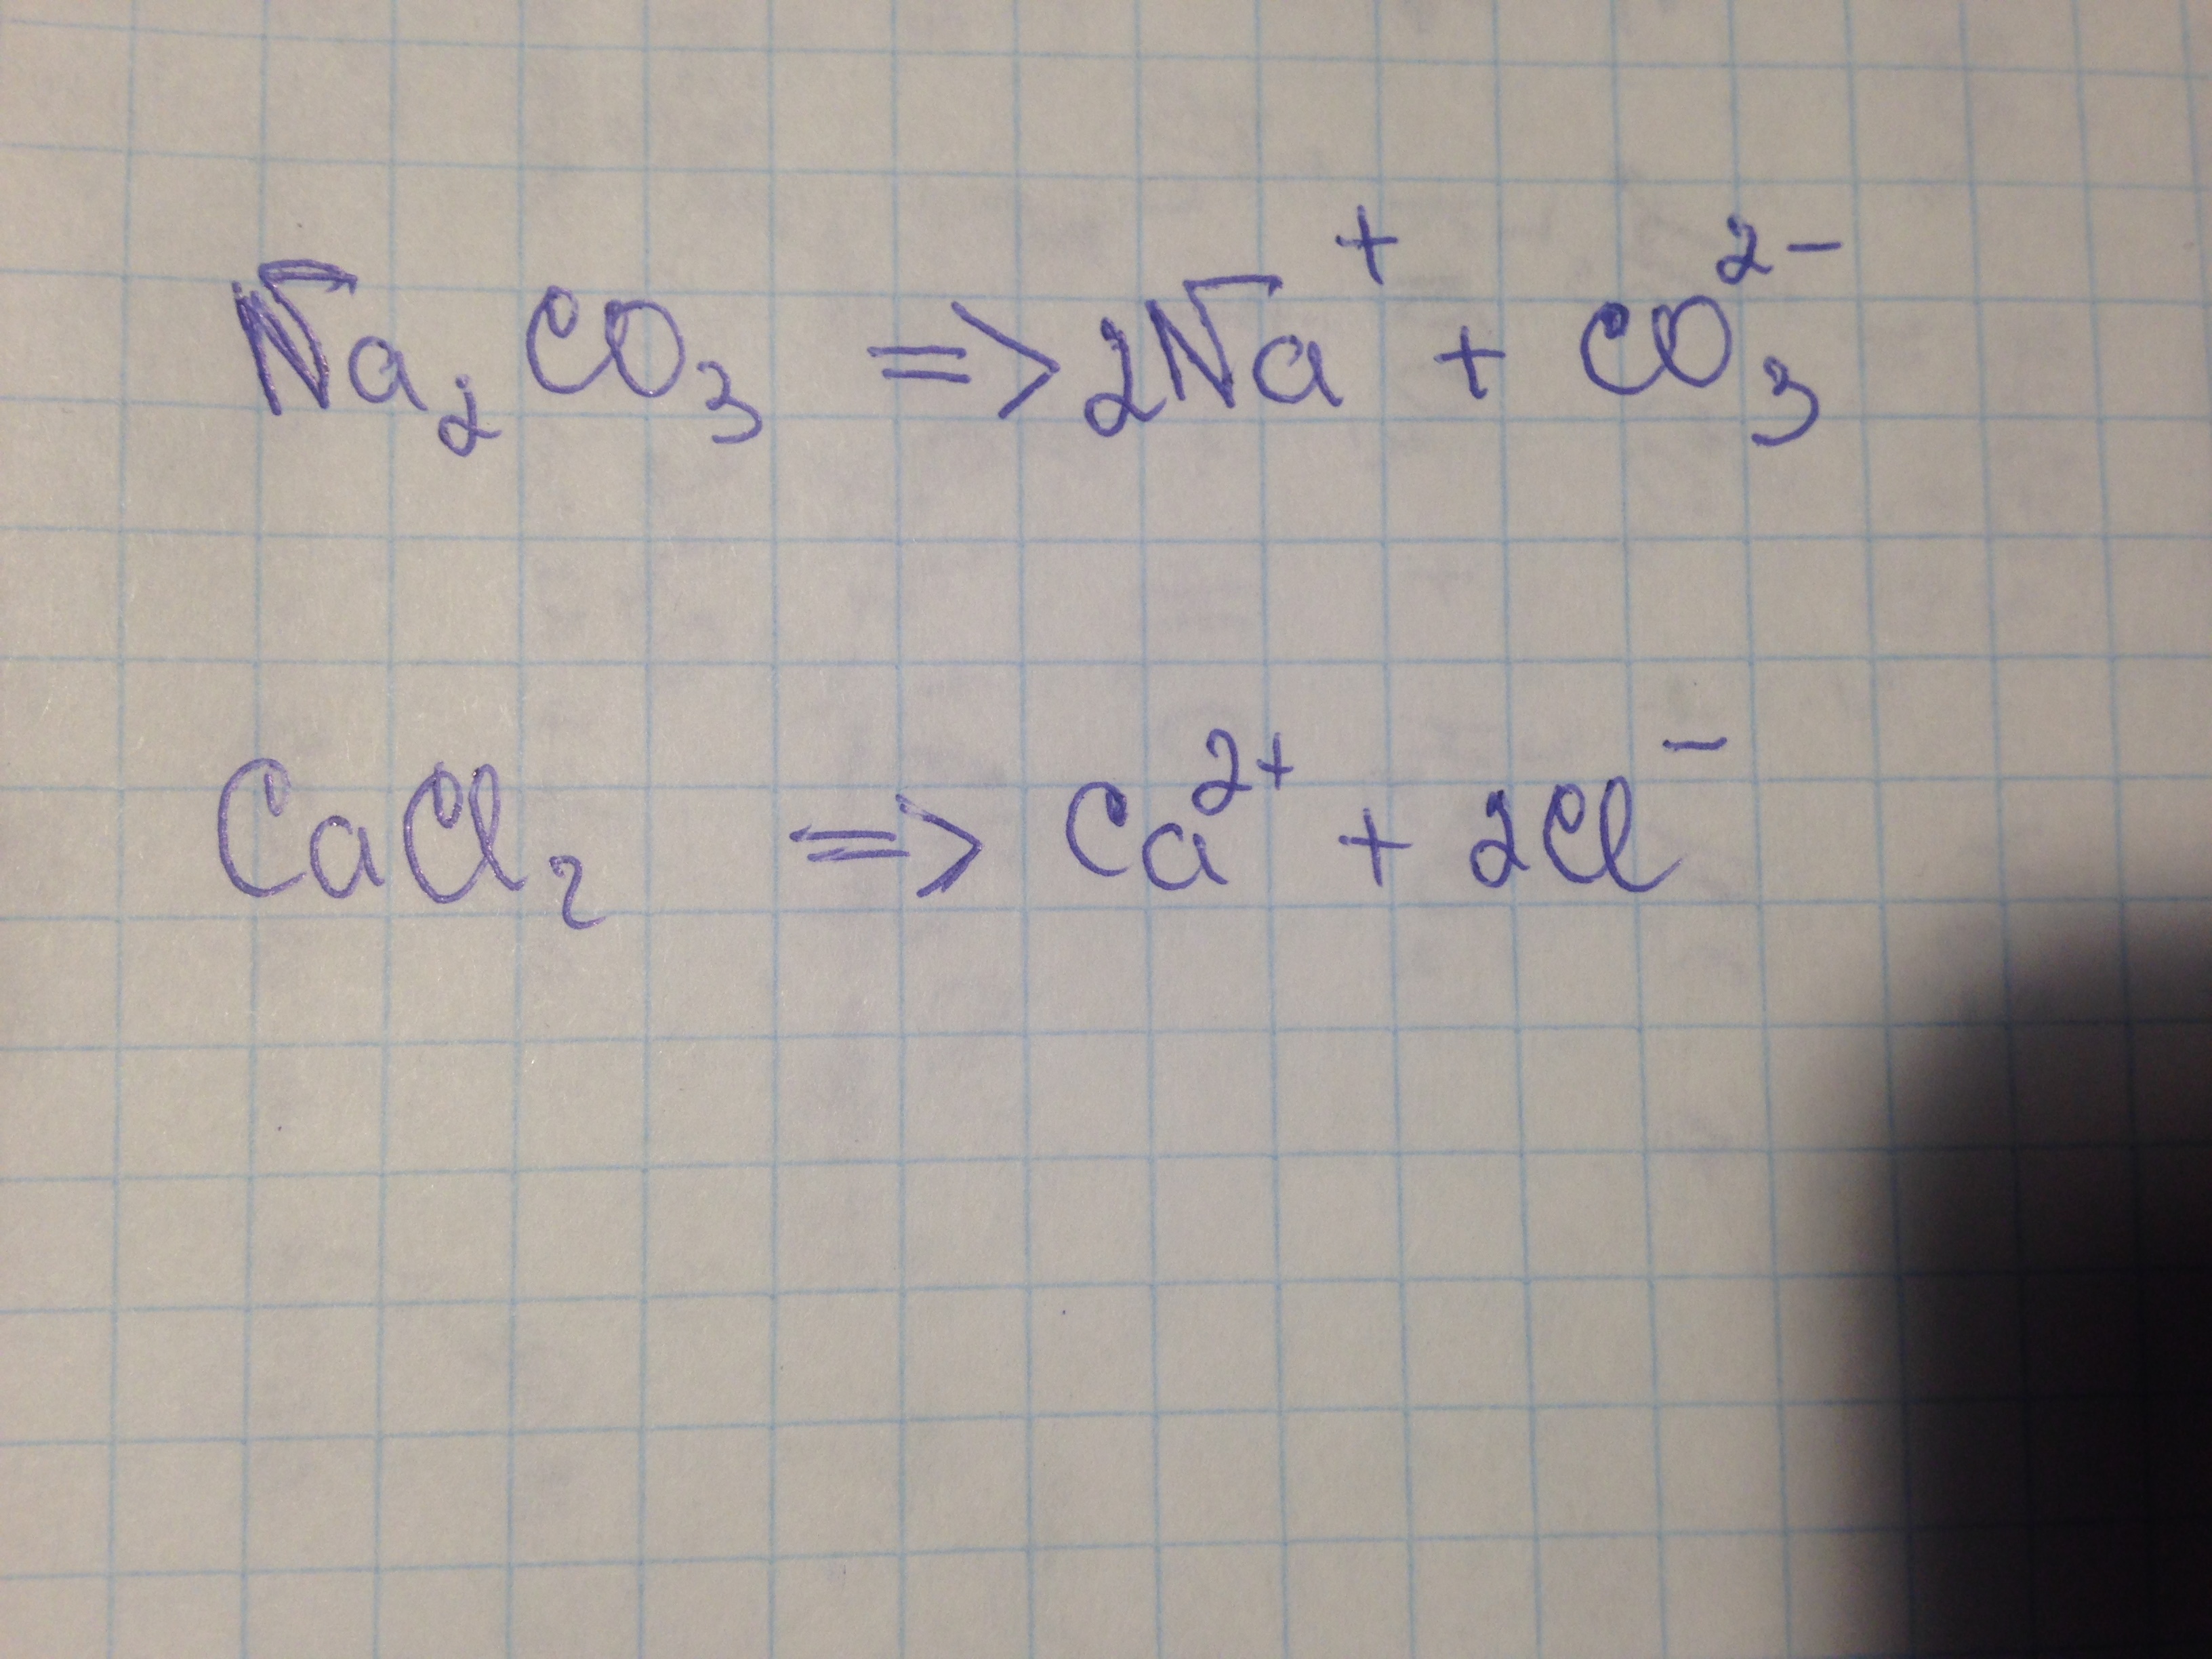 Na₂CO₃ => 2Na⁺ + CO₃²⁻
CaCl₂ => Ca²⁺ + 2Cl⁻